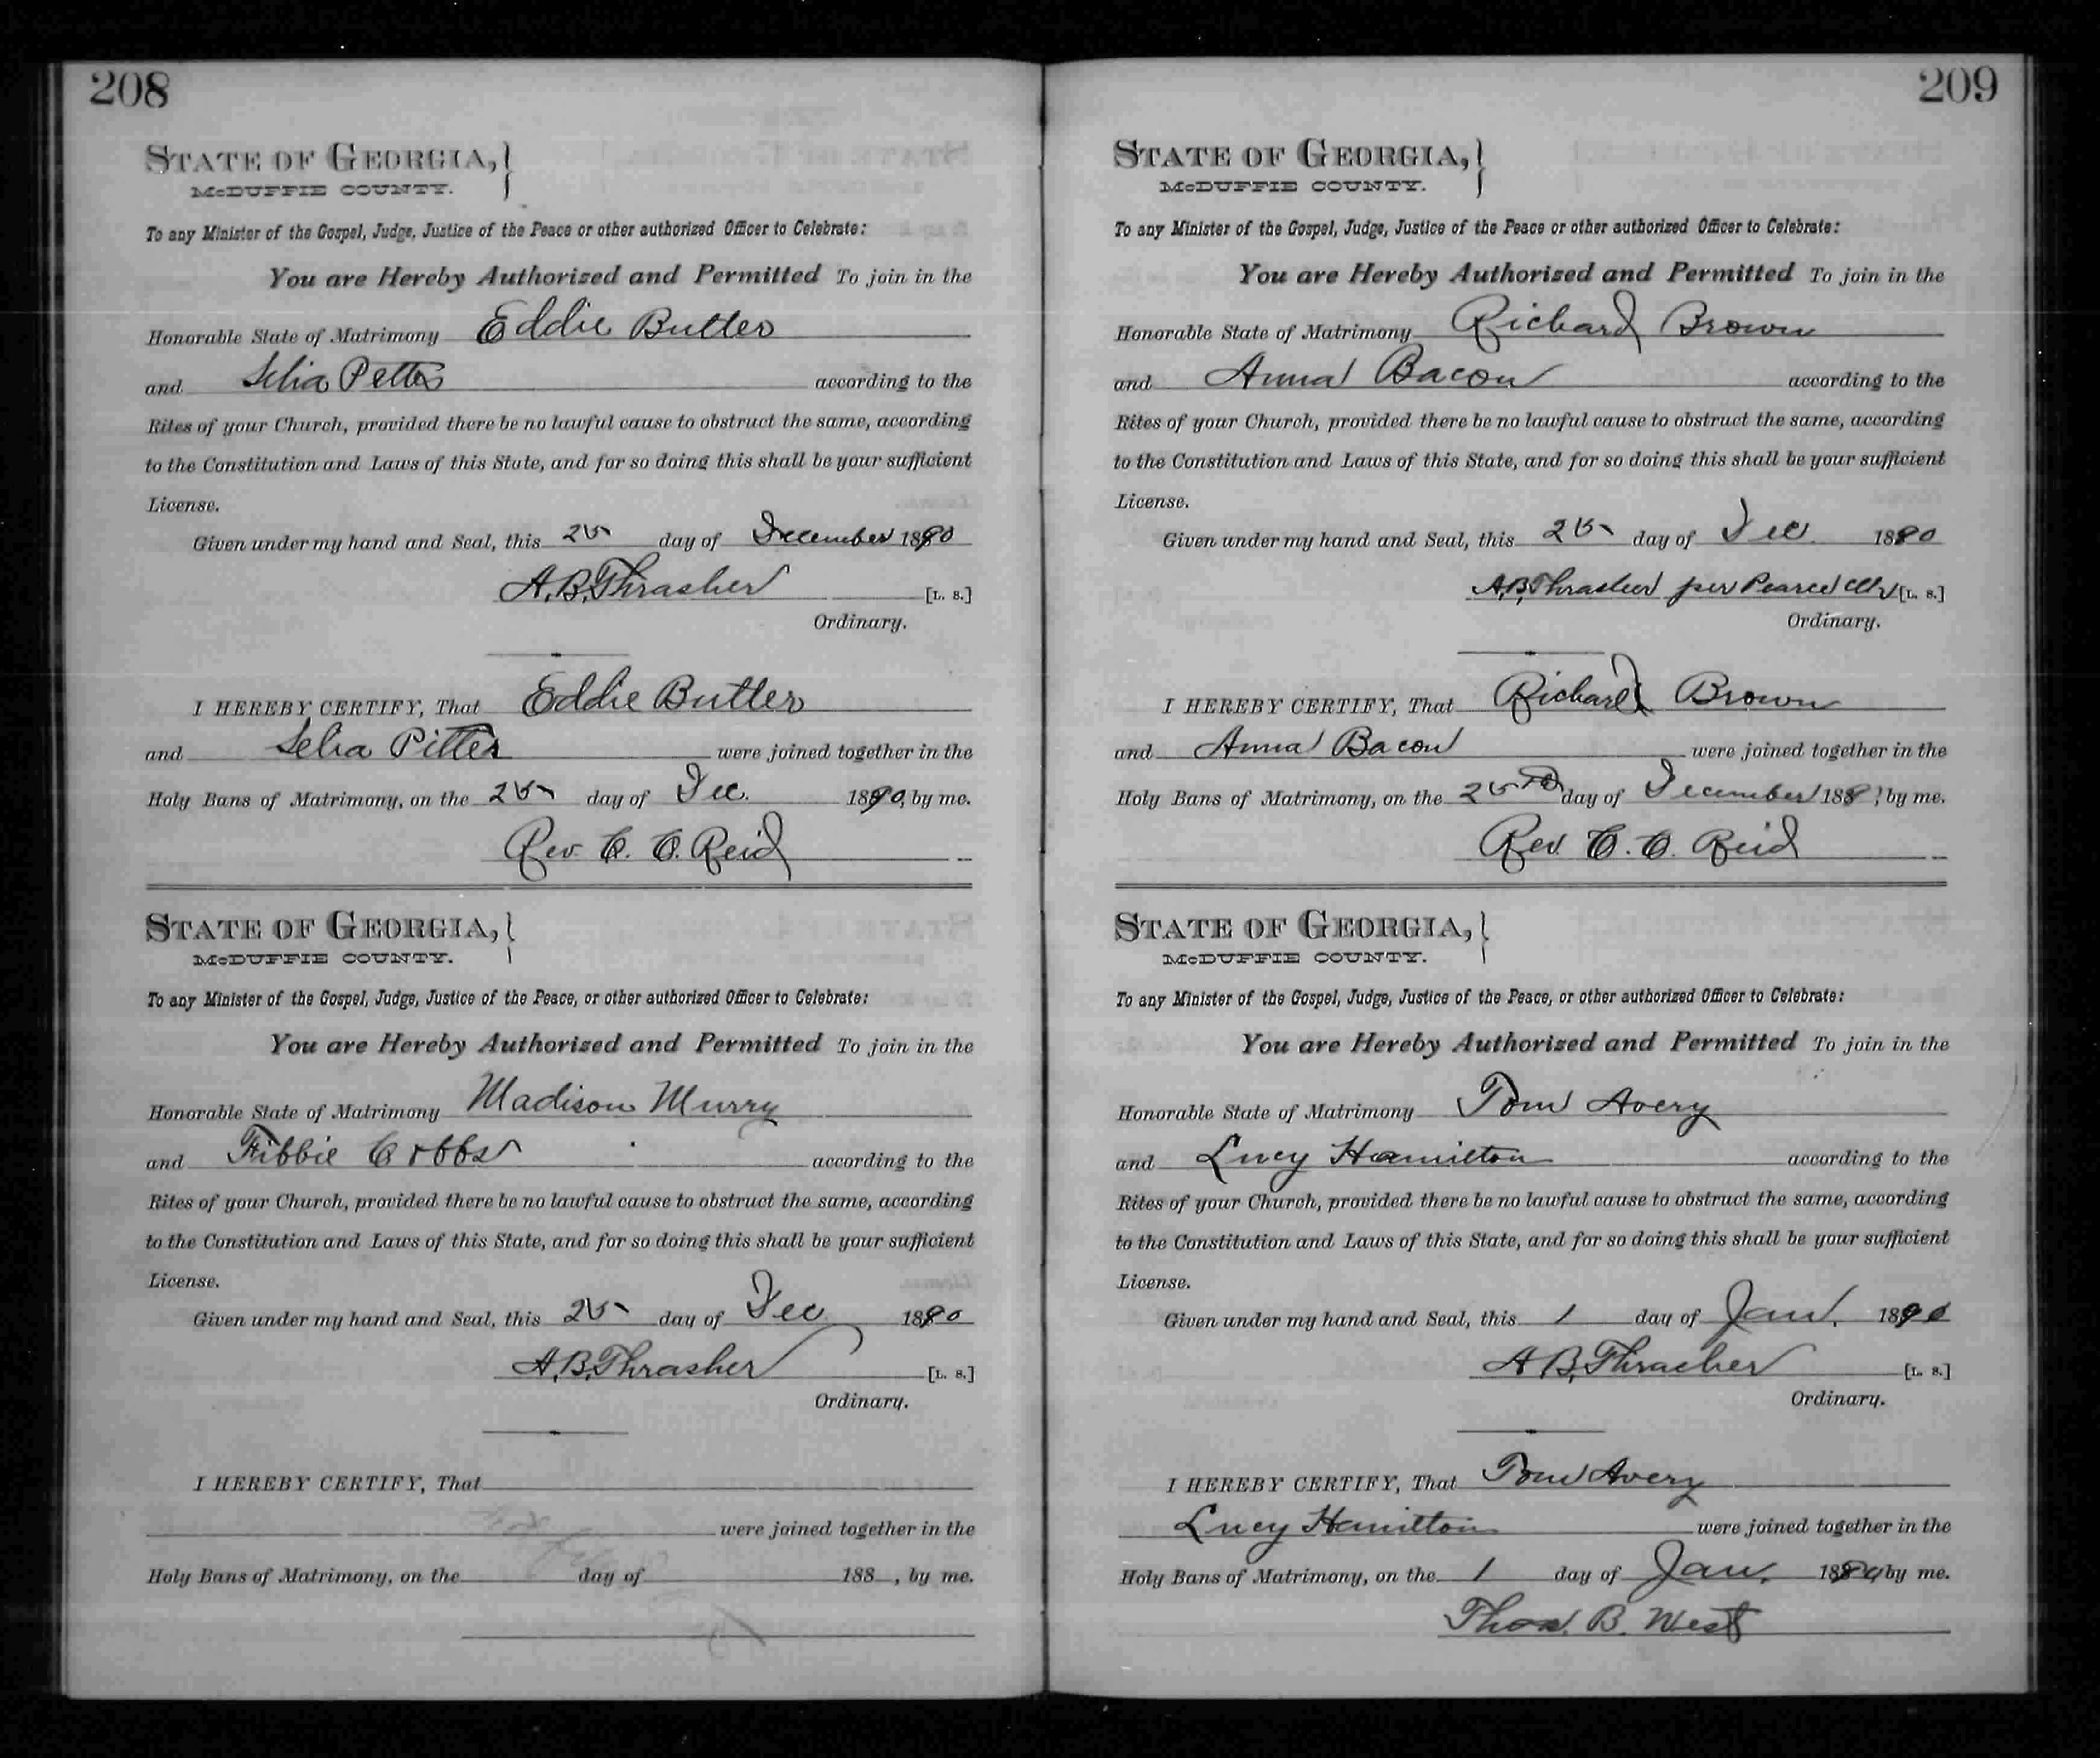 208
STATE OF GEORGIA,
McDUFFIE COUNTY.
To any Minister of the Gospel, Judge, Justice of the Peace or other authorized Officer to Celebrate:
You are Hereby Authorized and Permitted To join in the
Honorable State of Matrimony Eddie Butler
and Selia Pettis according to the
Rites of your Church, provided there be no lawful cause to obstruct the same, according
to the Constitution and Laws of this State, and for so doing this shall be your sufficient
License.
Given under my hand and Seal, this 25 day of December 1890
A.B. Thrasher [L. S.]
Ordinary.
I HEREBY CERTIFY, That Eddie Butler
and Selia were joined together in the
Holy Bans of Matrimony, on the 25 day of Dec. 1890, by me.
Rev. C. C. Reid
STATE OF GEORGIA,
McDUFFIE COUNTY.
To any Minister of the Gospel, Judge, Justice of the Peace, or other authorized Officer to Celebrate:
You are Hereby Authorized and Permitted To join in the
Honorable State of Matrimony Madison Murry
and Fibbie Cobbs according to the
Rites of your Church, provided there be no lawful cause to obstruct the same, according
to the Constitution and Laws of this State, and for so doing this shall be your sufficient
License.
Given under my hand and Seal, this 25 day of Dec 1890
A.B. Thrasher [L. S.]
Ordinary.
I HEREBY CERTIFY, That
were joined together in the
Holy Bans of Matrimony, on the day of 188 , by me.
209
STATE OF GEORGIA,
McDUFFIE COUNTY.
To any Minister of the Gospel, Judge, Justice of the Peace or other authorized Officer to Celebrate:
You are Hereby Authorized and Permitted To join in the
Honorable State of Matrimony Richard Brown
and Anna Bacon according to the
Rites of your Church, provided there be no lawful cause to obstruct the same, according
to the Constitution and Laws of this State, and for so doing this shall be your sufficient
License.
Given under my hand and Seal, this 25 day of Dec. 1890
A.B. Thrasher per Pearce [L. S.]
Ordinary.
I HEREBY CERTIFY, That Richard Brown
and Anna Bacon were joined together in the
Holy Bans of Matrimony, on the 25 day of December 188 , by me.
Rev. C. C. Reid
STATE OF GEORGIA,
McDUFFIE COUNTY.
To any Minister of the Gospel, Judge, Justice of the Peace, or other authorized Officer to Celebrate:
You are Hereby Authorized and Permitted To join in the
Honorable State of Matrimony Tom Avery
and Lucy Hamilton according to the
Rites of your Church, provided there be no lawful cause to obstruct the same, according
to the Constitution and Laws of this State, and for so doing this shall be your sufficient
License.
Given under my hand and Seal, this 1 day of Jan. 1890
A B. Thrasher [L. S.]
Ordinary.
I HEREBY CERTIFY, That Tom Avery
Lucy Hamilton were joined together in the
Holy Bans of Matrimony, on the 1 day of Jan. by me.
Thos. B. West